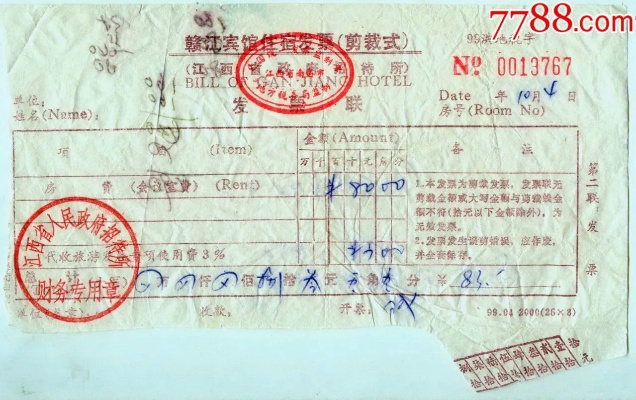 7788.com
赣江宾馆住宿发票(剪裁式)
(江西省政府招待所)
BILL OF GAN JIANG HOTEL
发票联
№ 0013767
Date 年 10月
单位:
姓名(Name):
房号(Room No)
项 目 (Item)
金额(Amount)
备 注
万 千 百 十 元 角 分
房 费 (会议室费) (Rent)
¥ 80 00
1.本发票为剪裁发票,发票联无
剪裁金额或大写金额与剪裁联金
额不符(拾元以下金额除外),为
无效发票。
2.发票发生误剪错误,应作废,
并全套保存。
3%
¥ 3 00
万 仟 佰 捌 拾 叁 元 角 分 ¥ 83.
收款:
开票:
99.04 2000(25×3)
第二联 发票
江西省人民政府招待所
财务专用章
捌 柒 陆 伍 肆 叁 贰 壹 拾
拾 拾 拾 拾 拾 拾 拾 拾 元